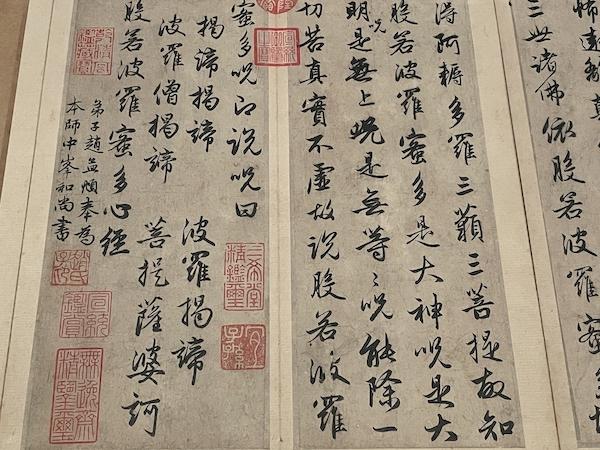 三世諸佛依般若波羅蜜多
得阿耨多羅三藐三菩提故知
般若波羅蜜多是大神呪是大
明呪是無上呪是無等〻呪能除一
切苦真實不虛故說般若波羅
蜜多呪即說呪曰
揭諦揭諦 波羅揭諦
波羅僧揭諦 菩提薩婆訶
般若波羅蜜多心經
弟子趙孟頫奉為
本師中峯和尚書
三希堂精鑑璽
宜子孫
宣統鑑賞
無逸齋精鑑璽